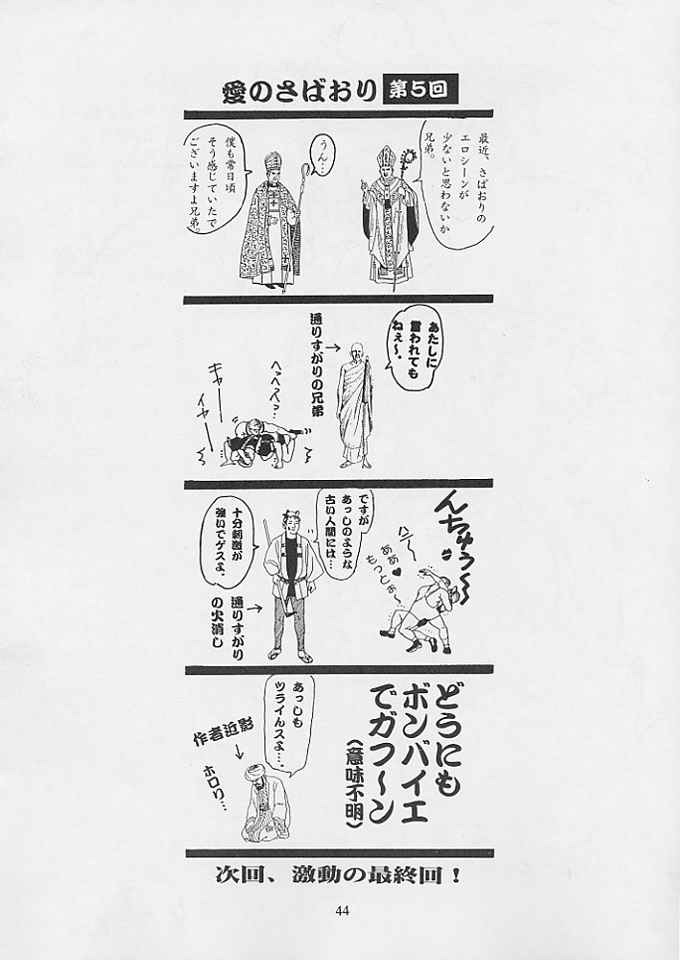 愛のさばおり 第5回
最近、さばおりの
エロシーンが
少ないと思わないか
兄弟。
うん…
僕も常日頃
そう感じていたで
ございますよ兄弟。
あたしに
言われても
ねぇ〜。
通りすがりの兄弟
へっへっへっ…
キャーー
イヤーー
んちゅう〜〜
ハァ〜
ああ♥
もっとぉ〜
ですが
あっしのような
古い人間には…
十分刺激が
強いでゲスよ。
通りすがり
の火消し
どうにも
ボンバイエ
でガフ〜ン
(意味不明)
あっしも
ツライんスよ…。
作者近影
ホロリ…
次回、激動の最終回!
44